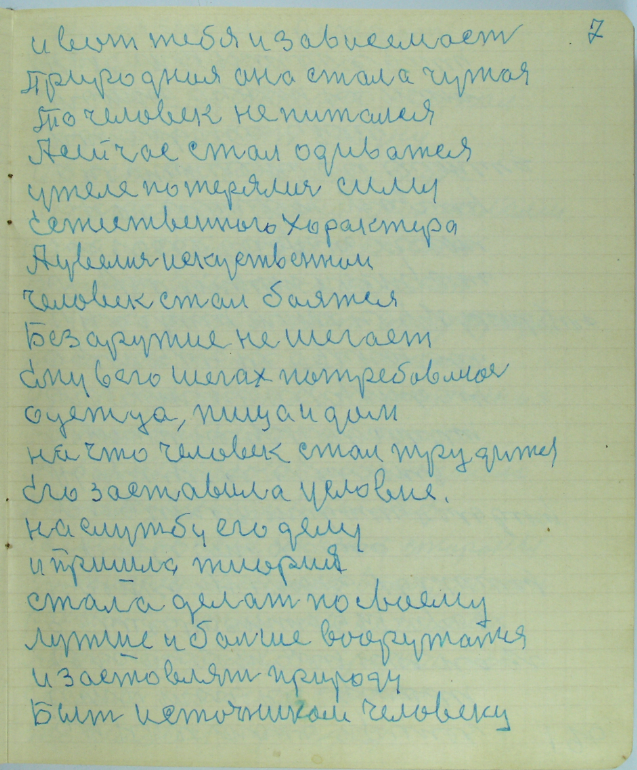 7
и вот тебя и зависемаст
Природния она стала чужая
То человек не питался
Асийчас стал одиватся
уже потерялия силы
Естественного характера
А увелия искуственном
человек стал боятся
Без аружие не шегает
Ему в его шегах потребовлное
одежда, пища и дом
на что человек стал трудится
Его заставила условие.
на службу его делу
и пришла тиория
стала делат по своему
лутше и болше вооружатся
и застовлят природу
Быт источником человеку